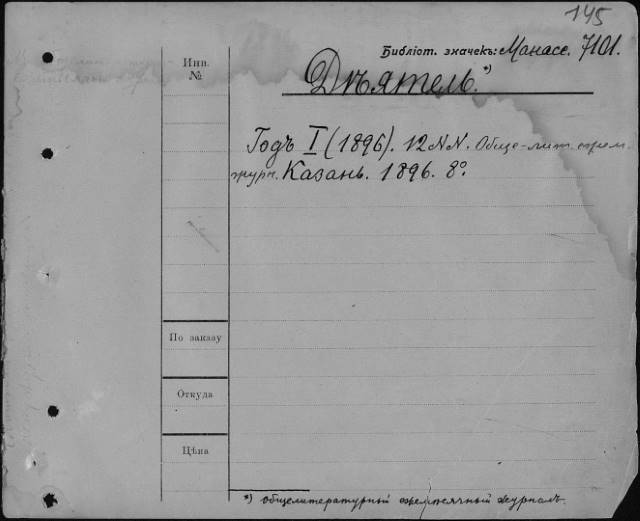 145
Бібліот. значекъ: Манасс. 7101.
Инв.
№
Дѣятель. *)
Годъ I (1896). 12 NN. Обще-лит. ежем.
журн. Казань. 1896. 8°.
По заказу
Откуда
Цѣна
*) общелитературный ежемѣсячный журналъ.